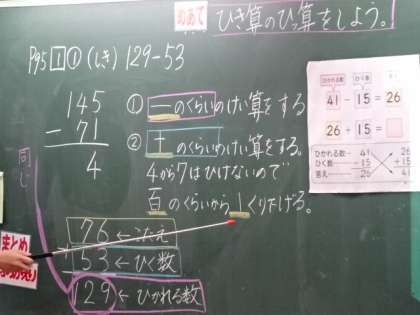 めあて ひき算のひっ算をしよう。
P95 1 ① (しき) 129-53
145
- 71
4
① 一のくらいのけい算をする
② 十のくらいのけい算をする。
4から7はひけないので
百のくらいから1くり下げる。
同じ
76 ← こたえ
+ 53 ← ひく数
129 ← ひかれる数
まとめ
ひかれる数 ひく数
41 - 15 = 26
26 + 15 =
ひかれる数… 41 26
ひく数… -15 +15
答え… 26 41